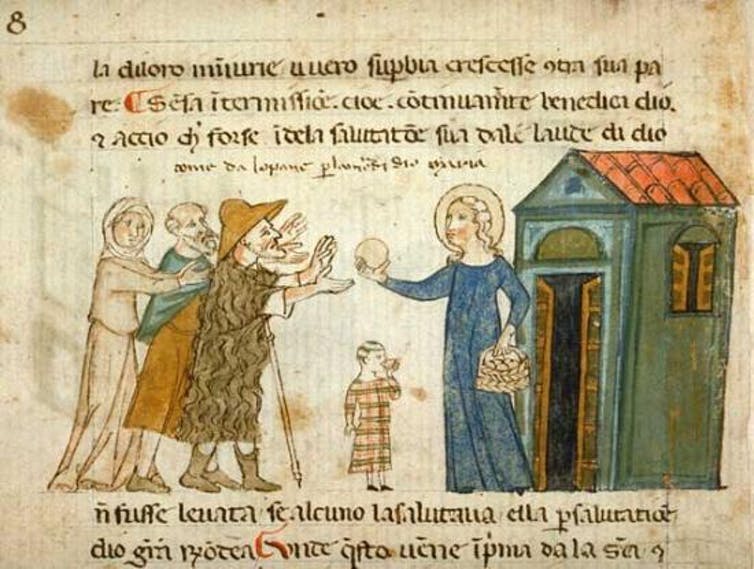 8
la diloro miurie uuero supbia crescesse 9tra sua pa
re. Sẽsa ĩtermissiõe. cioe. cõtinuamẽte benedici dio.
⁊ accio ch forse ĩdela salutatõe sua dale laude di dio
come da lopane p lamor di dio maria
ñ fusse leuata. se alcuno lasalutaua. ella p salutatiõe
dio grã Onde q̃sto uẽne ĩpma da la Scã ⁊